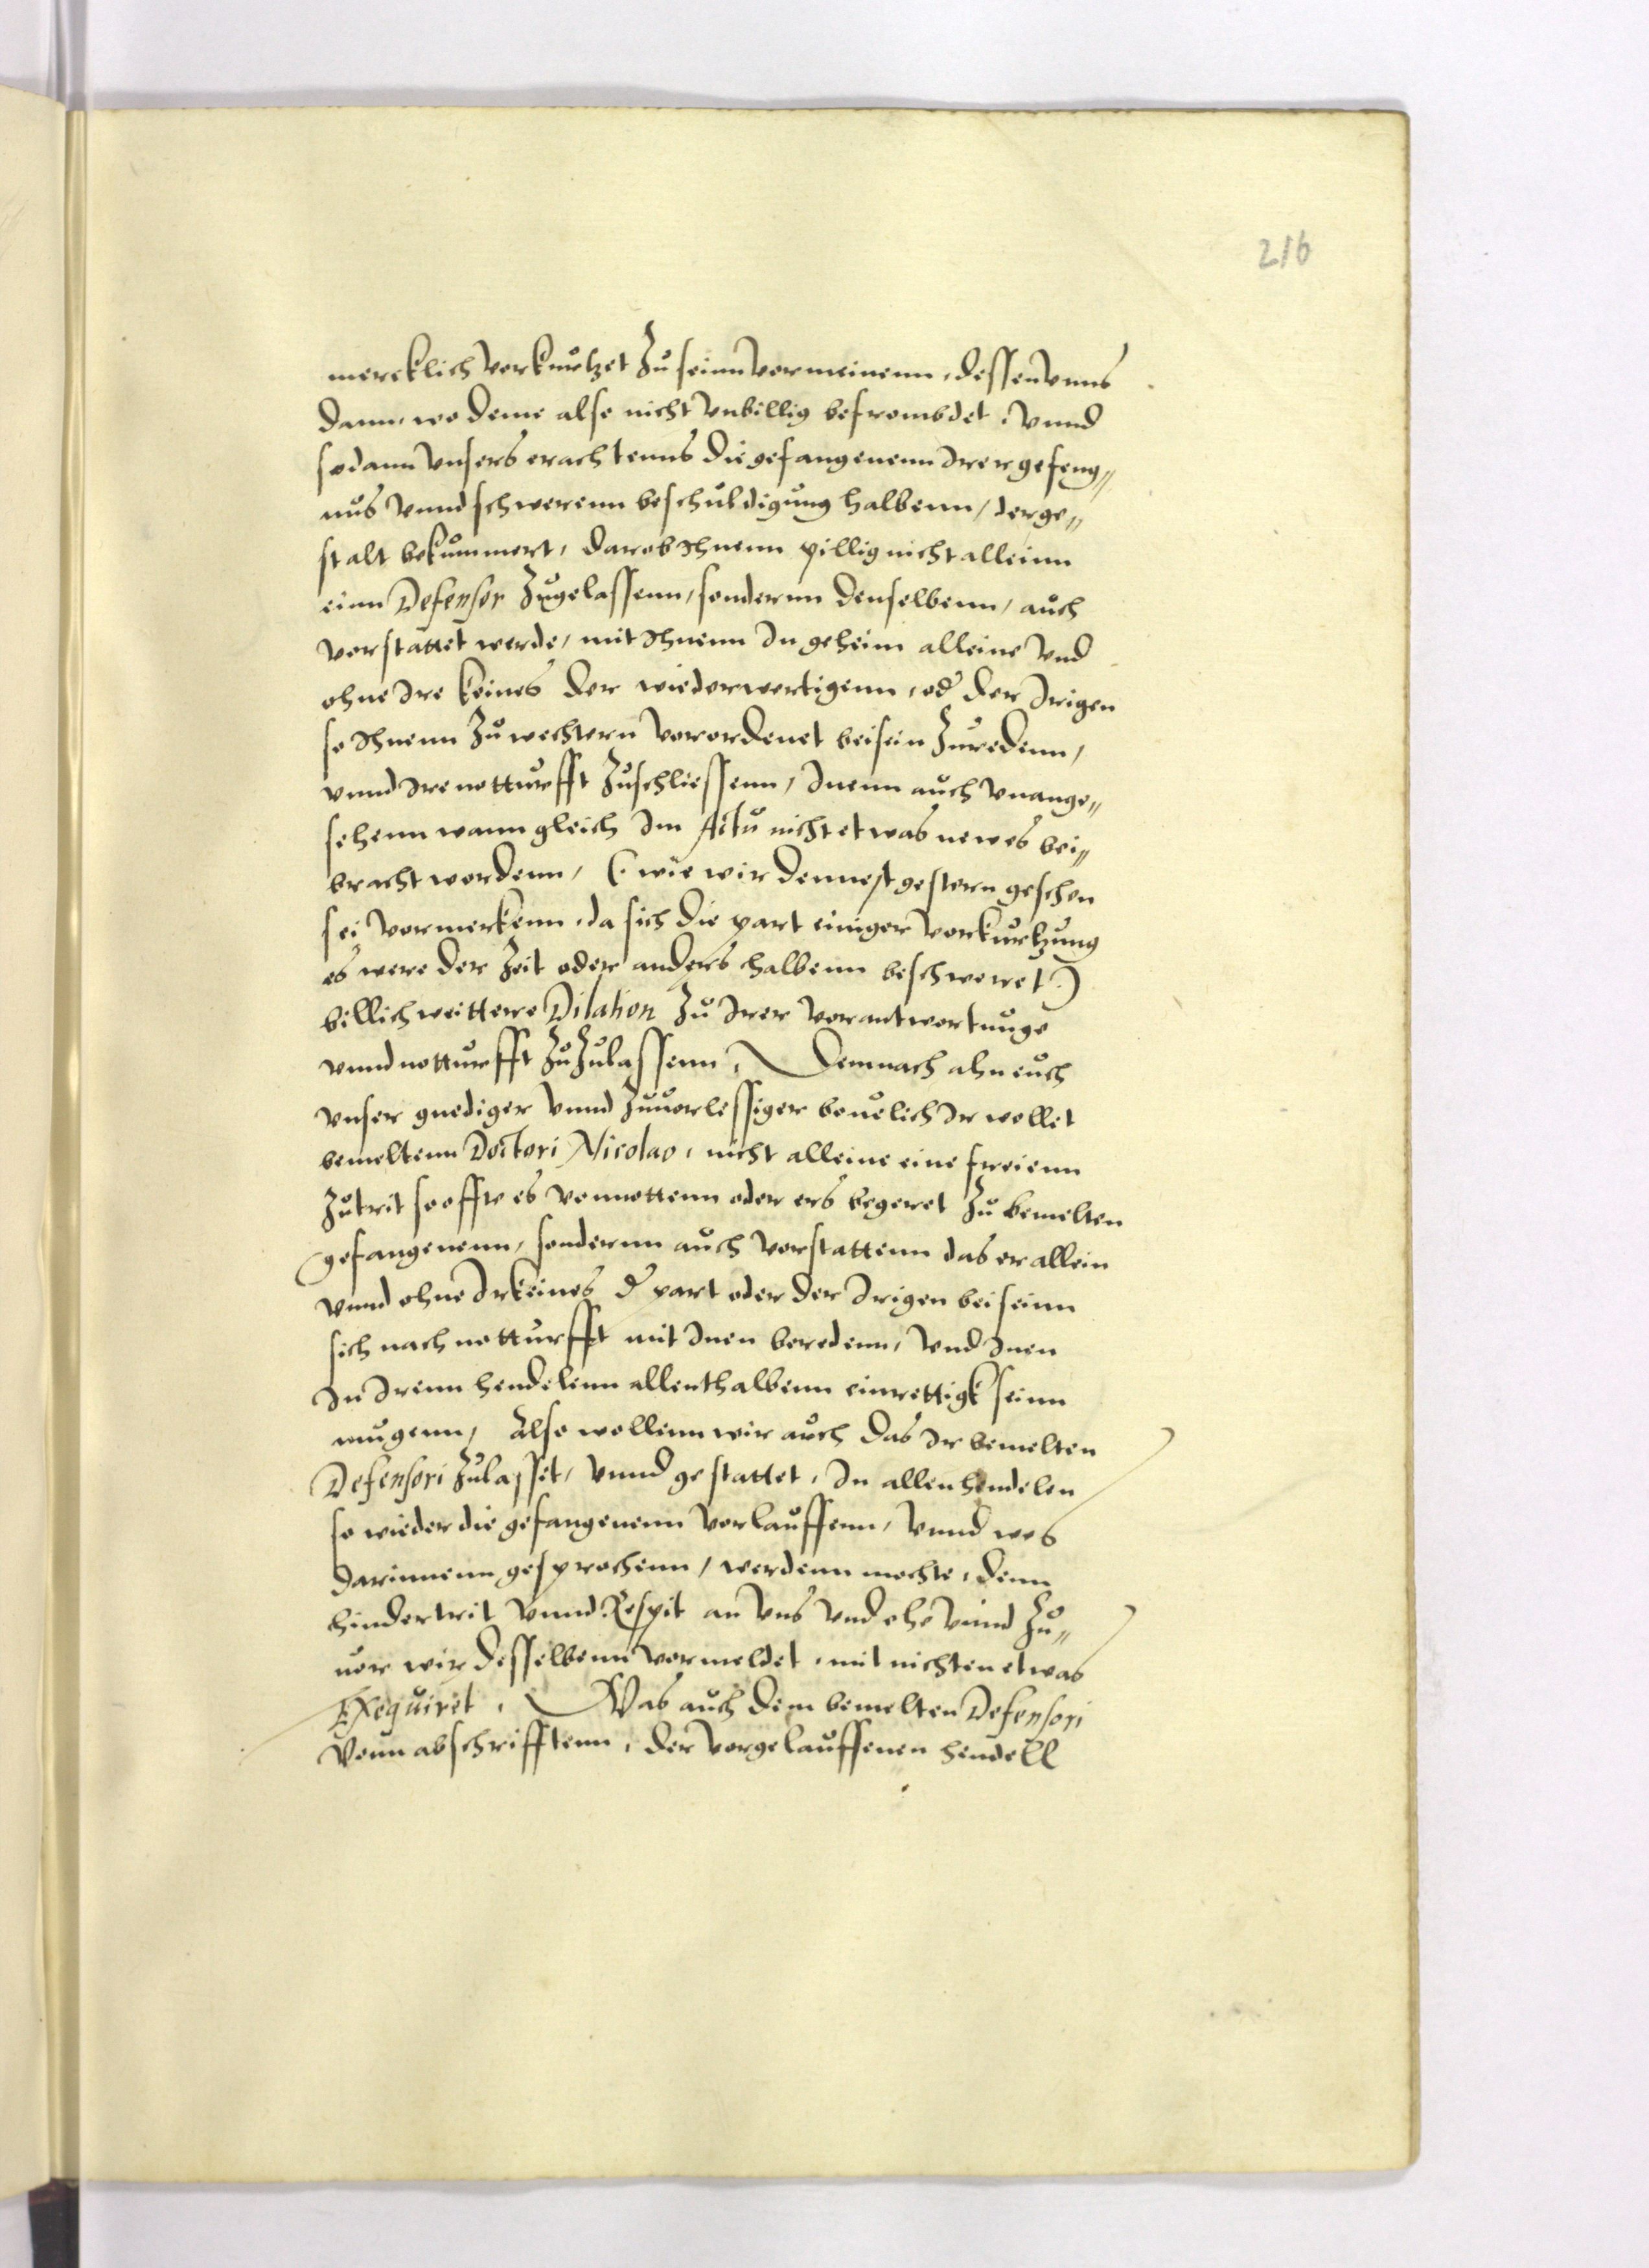 216
mercklich vorkurtzet zu seinn vormeinenn, dessen vnns
dann, wo deme also nicht vnbillig befrombdet, vnnd
so dann vnsers erachtenns die gefangenenn irer gefeng„
nus vnnd schwerenn beschuldigung halbenn, derge„
stalt bekummert, darob ihnenn pillig nicht alleinn
einn Defensor zugelassenn, sondernn denselbenn, auch
vorstattet werde, mit ihnenn in geheim alleine vnd
ohne ire keines der wiederwertigenn, od der irigen
so ihnenn zu wechtern vorordenet beisein zuredenn,
vnnd ire notturfft zuschliessenn, inenn auch vnange„
sehenn wann gleich im Actu nicht etwas newes bei„
bracht wordenn, (: wie wir dennest gestern geschen
sei vormerkenn, da sich die part einiger vorkurtzung
es were der zeit oder anders halbenn beschweret :)
billich weittere Dilation zu irer vorantwortunge
vnnd notturfft zuzulassenn, Demnach ahn euch
vnser gnediger vnnd zuuorlessiger beuelich ir wollet
bemeltenn Doctori Nicolao, nicht alleine eine freienn
zutrit so offte es vonnottenn oder ers begeret zu bemelten
gefangenenn, sondernn auch vorstattenn das er allein
vnnd ohne irkeines d part oder der irigen beiseinn
sich nach notturfft mit inen beredenn, vnd inen
in irenn hendelenn allenthalbenn einrettigk seinn
mugenn, Also wollenn wir auch das ir bemelten
Defensori zulasset, vnnd gestattet, in allen hendelen
so wieder die gefangenenn vorlauffenn, vnnd wes
darinnenn gesprochenn, werdenn mochte, denn
hindertrit vnnd Respit an vns vnd ehe vnnd zu„
uor wir desselbenn vormeldet, mit nichten etwas
Exequiret, Was auch dem bemelten Defensori
vonn abschrifftenn, der vorgelauffenen hendell